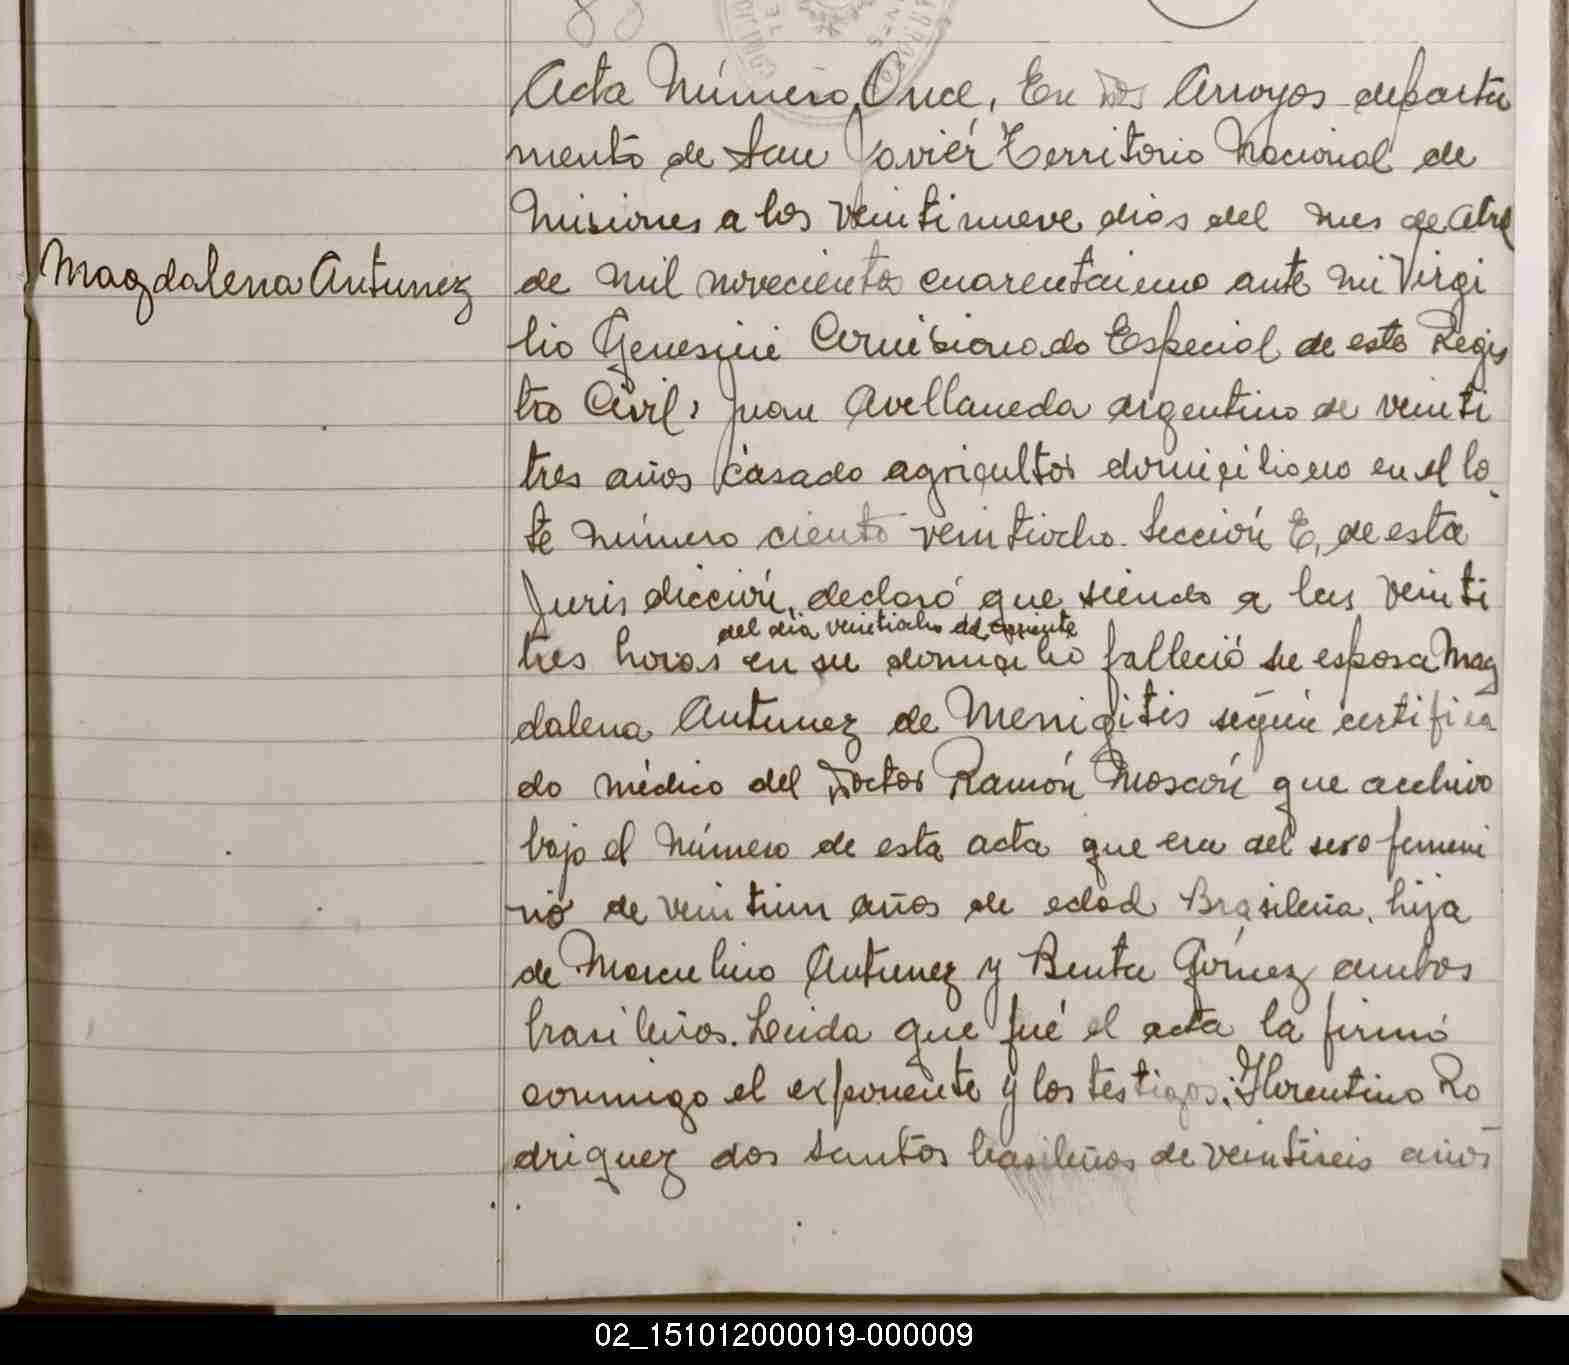 Acta Número Once, En Dos Arroyos departa
mento de San Javiér Territorio Nacional de
Misiones a los veintinueve dias del mes de Abril
Magdalena Antunez
de mil novecientos cuarentaiuno ante mi Virgi
lio Genesini Comisionado Especial de este Regis
tro Civil, Juan Avellaneda argentino de veinti
tres años casado agricultor domiciliado en el lo
te número ciento veintiocho. Sección E, de esta
Jurisdicción, declaró que siendo a las veinti
del dia veintiocho del corriente
tres horas en su domicilio falleció su esposa Mag
dalena Antunez de Menigitis según certifica
do médico del Doctor Ramón Moscón que archivo
bajo el número de esta acta que era del sexo femeni
no de veintiun años de edad Brasileña, hija
de Marculino Antunez y Benta Gómez ambos
brasileños. Leida que fué el acta la firmó
conmigo el exponente y los testigos: Florentino Ro
driguez dos Santos brasileños de veintiseis años
02_151012000019-000009